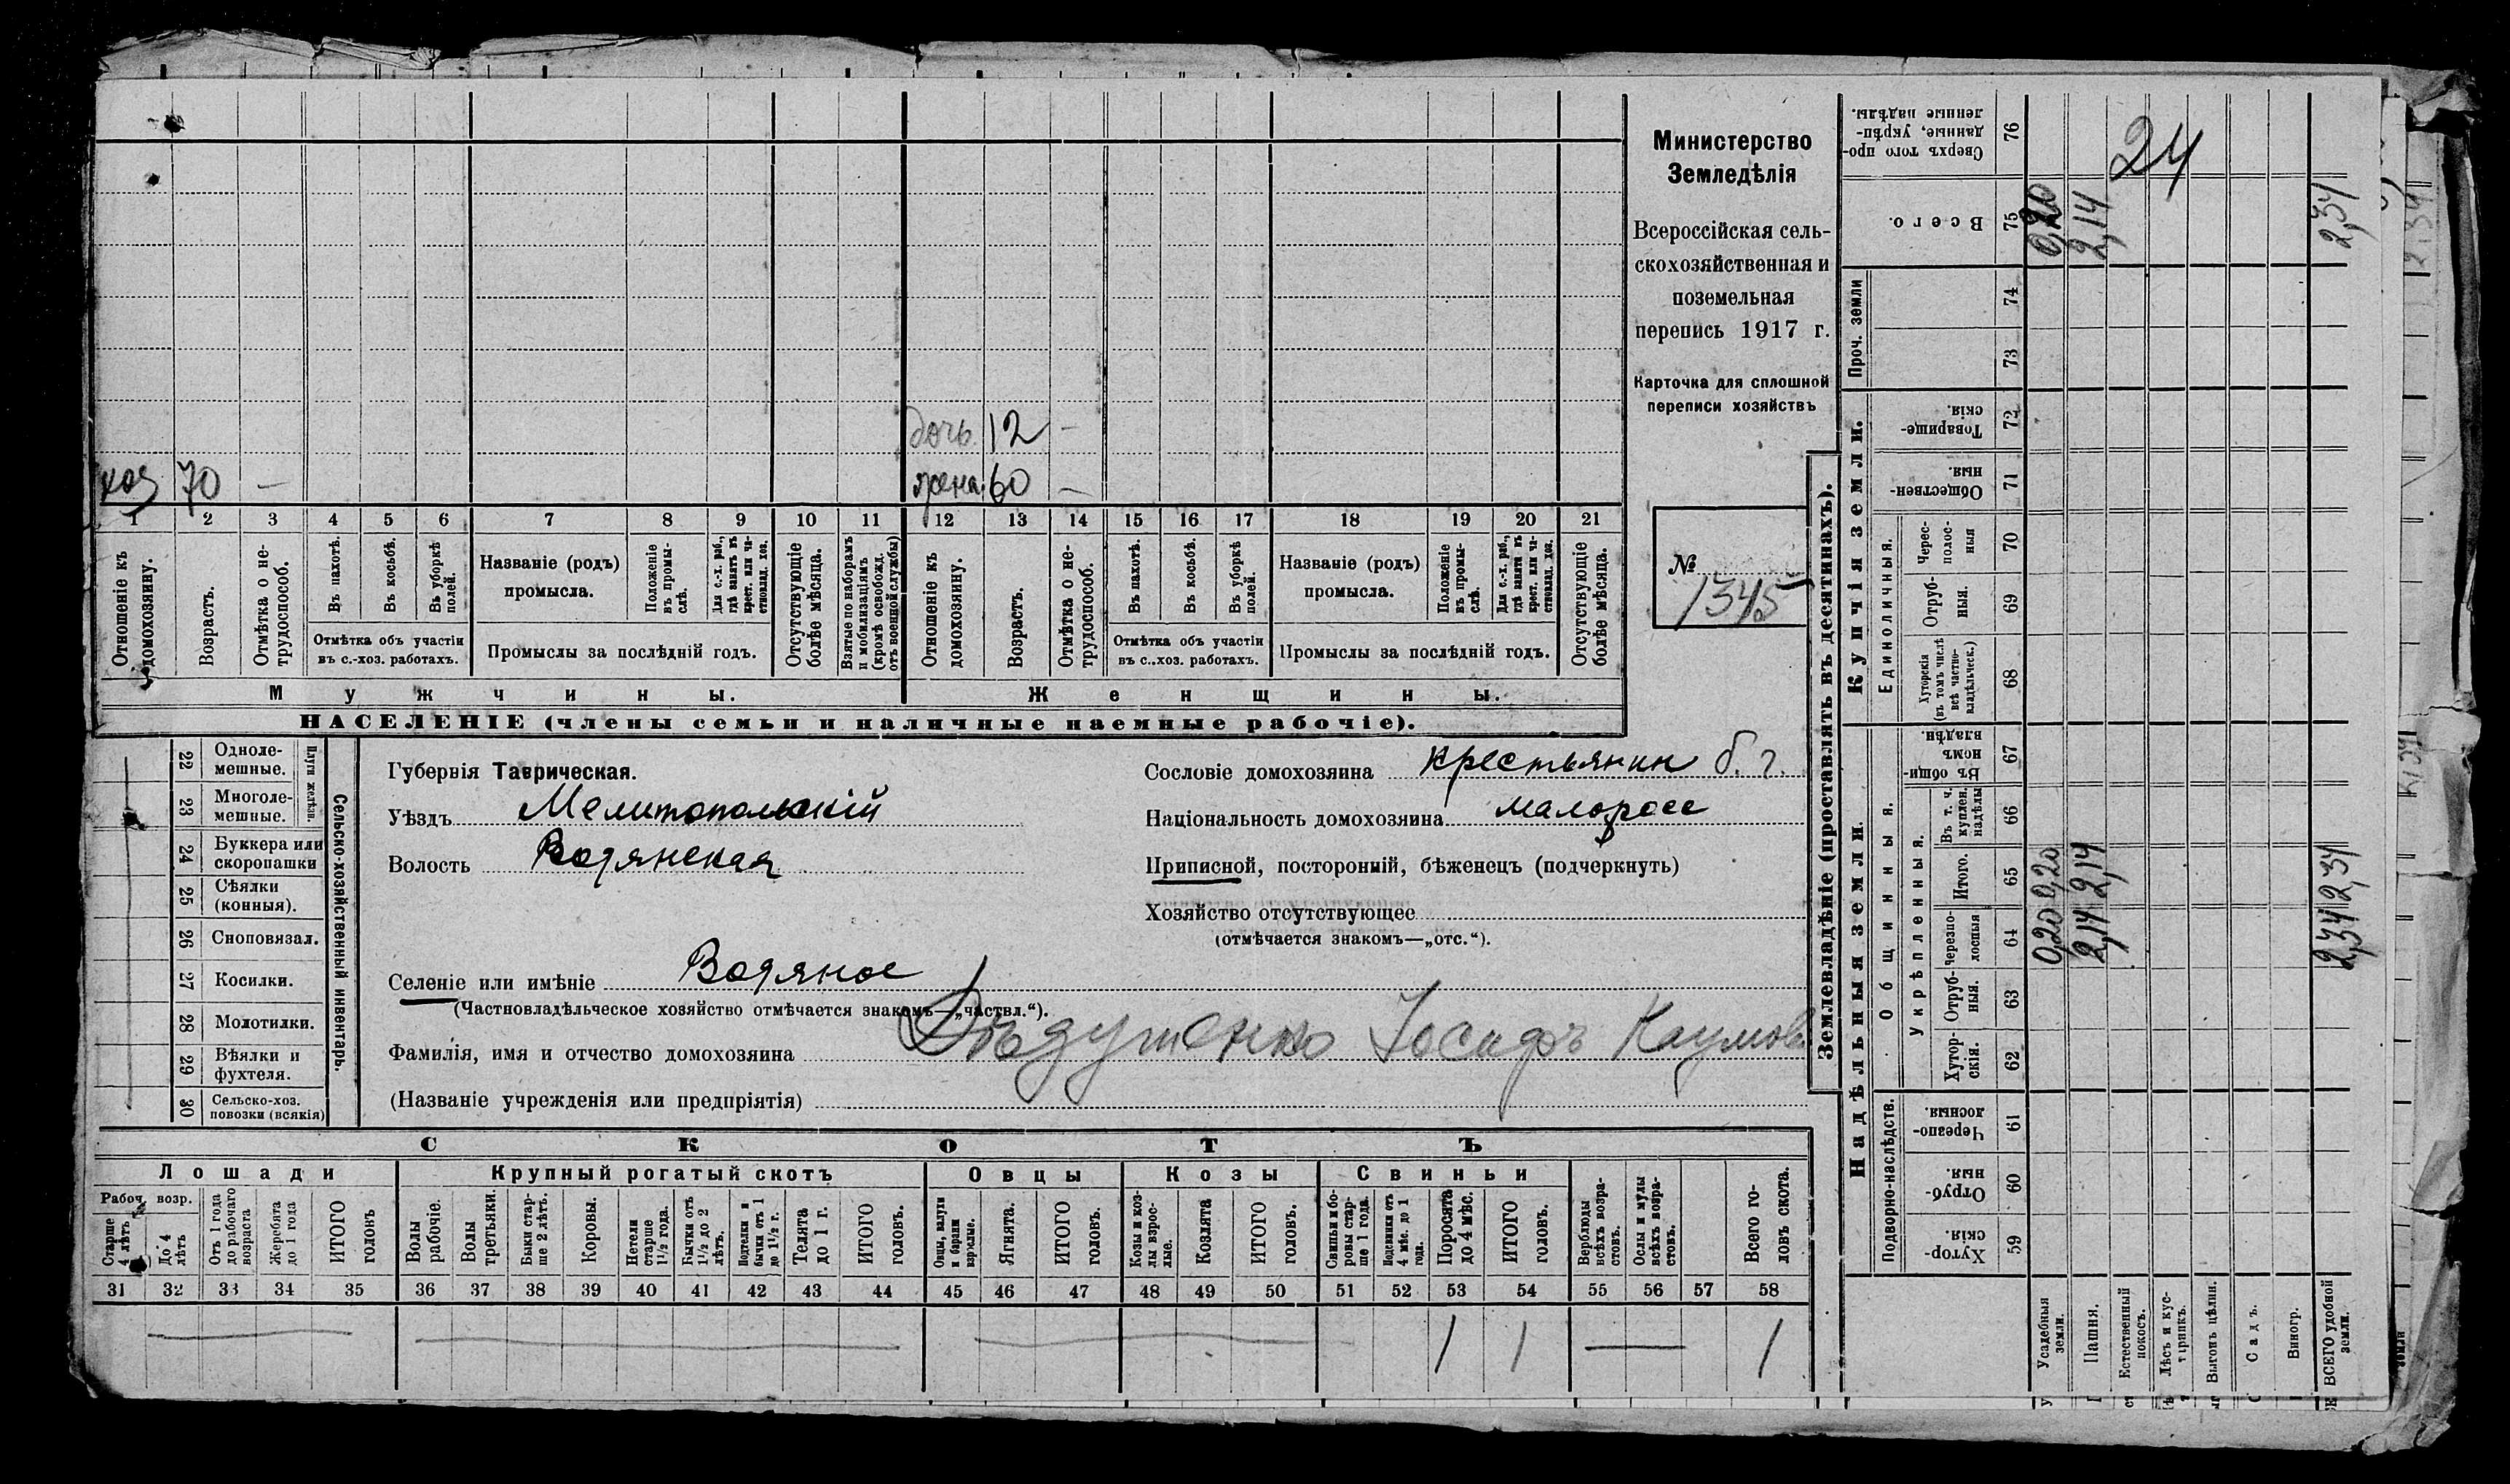 дочь 12 —
хоз 70 — жена 60 —
1 2 3 4 5 6 7 8 9 10 11 12 13 14 15 16 17 18 19 20 21
Отношеніе къ домохозяину.
Возрастъ.
Отмѣтка о нетрудоспособ.
Въ пахотѣ.
Въ косьбѣ.
Въ уборкѣ полей.
Отмѣтка объ участіи
въ с.-хоз. работахъ.
Названіе (родъ)
промысла.
Положеніе въ промыслѣ.
Для с.-х. раб., гдѣ занятъ въ крест. или частновлад. хоз.
Промыслы за послѣдній годъ.
Отсутствующіе болѣе мѣсяца.
Взятые по наборамъ и мобилизаціямъ (кромѣ освобожд. отъ военной службы)
Отношеніе къ домохозяину.
Возрастъ.
Отмѣтка о нетрудоспособ.
Въ пахотѣ.
Въ косьбѣ.
Въ уборкѣ полей.
Отмѣтка объ участіи
въ с.-хоз. работахъ.
Названіе (родъ)
промысла.
Положеніе въ промыслѣ.
Для с.-х. раб., гдѣ заняты въ крест. или частновлад. хоз.
Промыслы за послѣдній годъ.
Отсутствующіе болѣе мѣсяца.
Мужчины. Женщины.
НАСЕЛЕНІЕ (члены семьи и наличные наемные рабочіе).
Министерство
Земледѣлія
Всероссійская сель-
скохозяйственная и
поземельная
перепись 1917 г.
Карточка для сплошной
переписи хозяйствъ
№
1345
Сельско-хозяйственный инвентарь.
Плуги желѣзн.
22 Одноле-
мешные.
23 Многоле-
мешные.
24 Буккера или
скоропашки
25 Сѣялки
(конныя).
26 Сноповязал.
27 Косилки.
28 Молотилки.
29 Вѣялки и
фухтеля.
30 Сельско-хоз.
повозки (всякія)
Губернія Таврическая.
Уѣздъ Мелитопольскій
Волость Водянская
Селеніе или имѣніе Водяное
(Частновладѣльческое хозяйство отмѣчается знакомъ—„частвл.“).
Фамилія, имя и отчество домохозяина Дѣдушенко Іосифъ Наумов
(Названіе учрежденія или предпріятія)
Сословіе домохозяина крестьянин б. г.
Національность домохозяина малоросс
Приписной, посторонній, бѣженецъ (подчеркнуть)
Хозяйство отсутствующее
(отмѣчается знакомъ—„отс.“).
СКОТЪ
Лошади Крупный рогатый скотъ Овцы Козы Свиньи
Рабоч. возр.
Старше 4 лѣтъ
До 4 лѣтъ
Отъ 1 года до рабочаго возраста
Жеребята до 1 года
ИТОГО головъ
Волы рабочіе.
Волы третьяки.
Быки старше 2 лѣтъ.
Коровы.
Нетели старше 1½ года.
Бычки отъ 1½ до 2 лѣтъ.
Подтелки и бычки отъ 1 до 1½ г.
Телята до 1 г.
ИТОГО головъ.
Овцы, валухи и бараны взрослые.
Ягнята.
ИТОГО головъ.
Козы и козлы взрослые.
Козлята
ИТОГО головъ.
Свиньи и боровы старше 1 года.
Подсвинки отъ 4 мѣс. до 1 года.
Поросята до 4 мѣс.
ИТОГО головъ.
Верблюды всѣхъ возрастовъ.
Ослы и мулы всѣхъ возрастовъ.
Всего головъ скота.
31 32 33 34 35 36 37 38 39 40 41 42 43 44 45 46 47 48 49 50 51 52 53 54 55 56 57 58
1 1 — 1
Землевладѣніе (проставлять въ десятинахъ).
Купчія земли.
Надѣльныя земли.
Сверхъ того проданные, укрѣпленные надѣлы. 76
Всего. 75
Проч. земли 74 73
Товарищескія. 72
Общественныя. 71
Единоличныя.
Чересполосныя 70
Отрубныя. 69
Хуторскія (въ томъ числѣ всѣ частновладѣльческ.) 68
Общинныя.
Въ общинномъ владѣн. 67
Укрѣпленныя.
Въ т. ч. куплен. надѣлы 66
Итого. 65
черезполосныя 64
Отрубныя. 63
Хуторскія. 62
Подворно-наслѣдств.
Черезполосныя. 61
Отрубныя. 60
Хуторскія. 59
Усадебныя земли. 0,20 0,20 0,20
Пашня. 2,14 2,14 2,14
Естественный покосъ.
Лѣсъ и кустарникъ.
Выгонъ цѣлин.
Садъ.
Виногр.
ВСЕГО удобной земли. 2,34 2,34 2,34
24